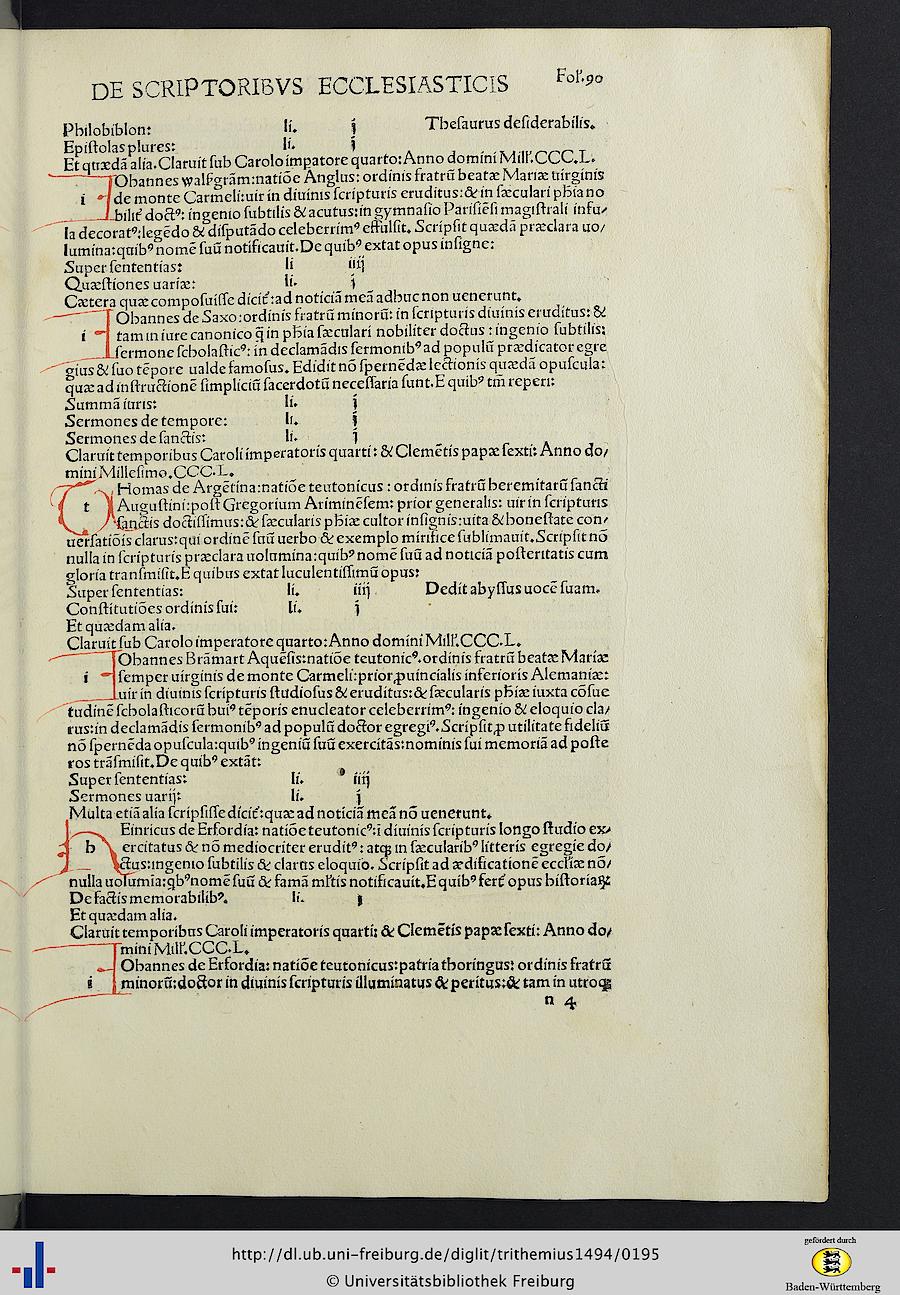 DE SCRIPTORIBVS ECCLESIASTICIS Fol'.90
Philobiblon: li. j Thesaurus desiderabilis.
Epiſtolas plures: li. j
Et quædã alia. Claruit ſub Carolo impatore quarto: Anno domini Mill'.CCC.L.
i Ohannes walſgrãm: natiõe Anglus: ordinis fratrũ beatæ Mariæ uirginis
de monte Carmeli: uir in diuinis ſcripturis eruditus: & in ſæculari pħia no
bilit́ doctꝰ: ingenio ſubtilis & acutus: in gymnaſio Pariſiẽſi magiſtrali infu⸗
la decoratꝰ: legẽdo & diſputãdo celeberrimꝰ effulſit. Scripſit quædã præclara uo⸗
lumina: quibꝰ nomẽ ſuũ notificauit. De quibꝰ extat opus inſigne:
Super ſententias: li iiij
Quæſtiones uariæ: li. j
Cætera quæ compoſuiſſe dicit́: ad noticiã meã adhuc non uenerunt.
i Ohannes de Saxo: ordinis fratrũ minorũ: in ſcripturis diuinis eruditus: &
tam in iure canonico q̃ in pħia ſæculari nobiliter doctus: ingenio ſubtilis:
ſermone ſcholaſticꝰ: in declamãdis ſermonibꝰ ad populũ prædicator egre
gius & ſuo tẽpore ualde famoſus. Edidit nõ ſpernẽdæ lectionis quædã opuſcula:
quæ ad inſtructionẽ ſimpliciũ ſacerdotũ neceſſaria ſunt. E quibꝰ tm̃ reperi:
Summã iuris: li. j
Sermones de tempore: li. j
Sermones de ſanctis: li. j
Claruit temporibus Caroli imperatoris quarti: & Clemẽtis papæ ſexti: Anno do⸗
mini Milleſimo.CCC.L.
t Homas de Argẽtina: natiõe teutonicus: ordinis fratrũ heremitarũ ſancti
Auguſtini: poſt Gregorium Ariminẽſem: prior generalis: uir in ſcripturis
ſanctis doctiſſimus: & ſæcularis pħiæ cultor inſignis: uita & honeſtate con⸗
uerſatiõis clarus: qui ordinẽ ſuũ uerbo & exemplo mirifice ſublimauit. Scripſit nõ
nulla in ſcripturis præclara uolumina: quibꝰ nomẽ ſuũ ad noticiã poſteritatis cum
gloria tranſmiſit. E quibus extat luculentiſſimũ opus:
Super ſententias: li. iiij Dedit abyſſus uocẽ ſuam.
Conſtitutiões ordinis ſui: li. j
Et quædam alia.
Claruit ſub Carolo imperatore quarto: Anno domini Mill'.CCC.L.
i Ohannes Brãmart Aquẽſis: natiõe teutonicꝰ. ordinis fratrũ beatæ Mariæ
ſemper uirginis de monte Carmeli: prior ꝓuincialis inferioris Alemaniæ:
uir in diuinis ſcripturis ſtudioſus & eruditus: & ſæcularis pħiæ iuxta cõſue
tudinẽ ſcholaſticorũ huiꝰ tẽporis enucleator celeberrimꝰ: ingenio & eloquio cla⸗
rus: in declamãdis ſermonibꝰ ad populũ doctor egregiꝰ. Scripſit ꝓ utilitate fideliũ
nõ ſpernẽda opuſcula: quibꝰ ingeniũ ſuũ exercitãs: nominis ſui memoriã ad poſte
ros trãſmiſit. De quibꝰ extãt:
Super ſententias: li. iiij
Sermones uarij: li. j
Multa etiã alia ſcripſiſſe dicit́: quæ ad noticiã meã nõ uenerunt.
h Einricus de Erfordia: natiõe teutonicꝰ: ĩ diuinis ſcripturis longo ſtudio ex⸗
ercitatus & nõ mediocriter eruditꝰ: atqꝫ in ſæcularibꝰ litteris egregie do⸗
ctus: ingenio ſubtilis & clarus eloquio. Scripſit ad ædificationẽ eccliæ nõ⸗
nulla uolumia: qbꝰ nomẽ ſuũ & famã ml'tis notificauit. E quibꝰ fert́ opus hiſtoriaꝝ
De factis memorabilibꝰ. li. j
Et quædam alia.
Claruit temporibus Caroli imperatoris quarti: & Clemẽtis papæ ſexti: Anno do⸗
mini Mill'.CCC.L.
i Ohannes de Erfordia: natiõe teutonicus: patria thoringus: ordinis fratrũ
minorũ: doctor in diuinis ſcripturis illuminatus & peritus: & tam in utroqꝫ
n 4
http://dl.ub.uni-freiburg.de/diglit/trithemius1494/0195
© Universitätsbibliothek Freiburg
gefördert durch
Baden-Württemberg